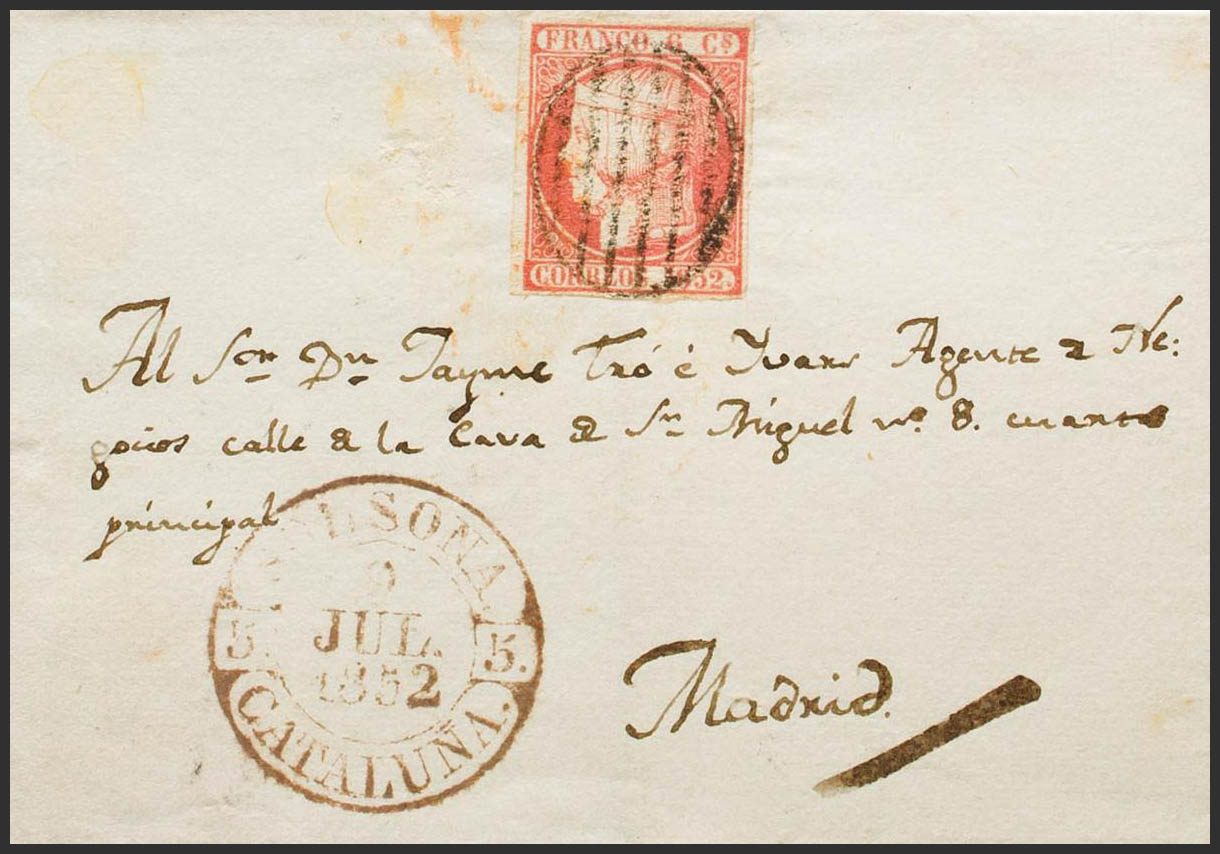 FRANCO. 6 Cs
CORREOS 1852.
Al Sor. Dn. Jayme Tró é Yvars Agente de Ne:
gocios calle de la Cava de Sn. Miguel no. 8. cuarto
principal
SOLSONA.
9
JUL.
1852
5. 5.
CATALUÑA.
Madrid.